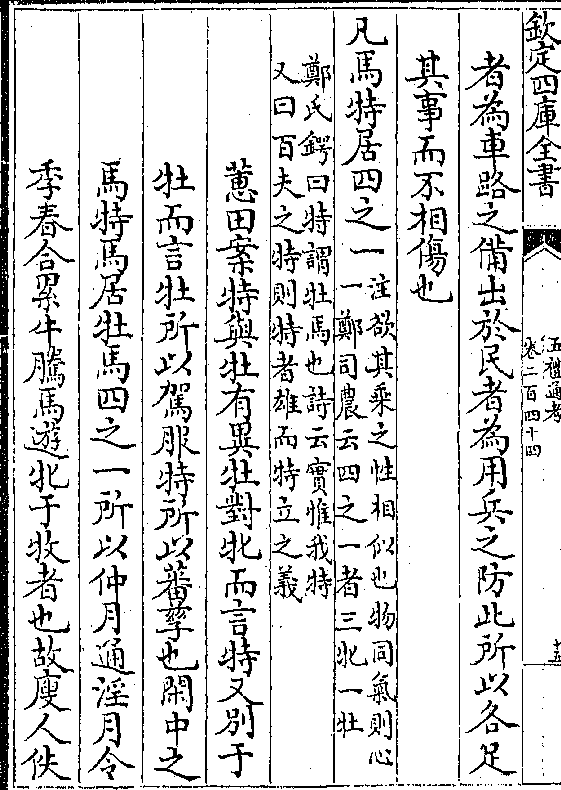 欽定四庫全書
五禮通考
卷二百四十四
十五
者為車路之備出於民者為用兵之防此所以各足
其事而不相傷也
凡馬特居四之一
注欲其乘之性相似也物同氣則心
一鄭司農云四之一者三牝一牡
鄭氏鍔曰特謂牡馬也詩云實惟我特
又曰百夫之特則特者雄而特立之義
蕙田案特與牡有異牡對牝而言特又別于
牡而言牡所以駕服特所以蕃孳也閑中之
馬特馬居牡馬四之一所以仲月通淫月令
季春合累牛騰馬遊牝于牧者也故廋人佚